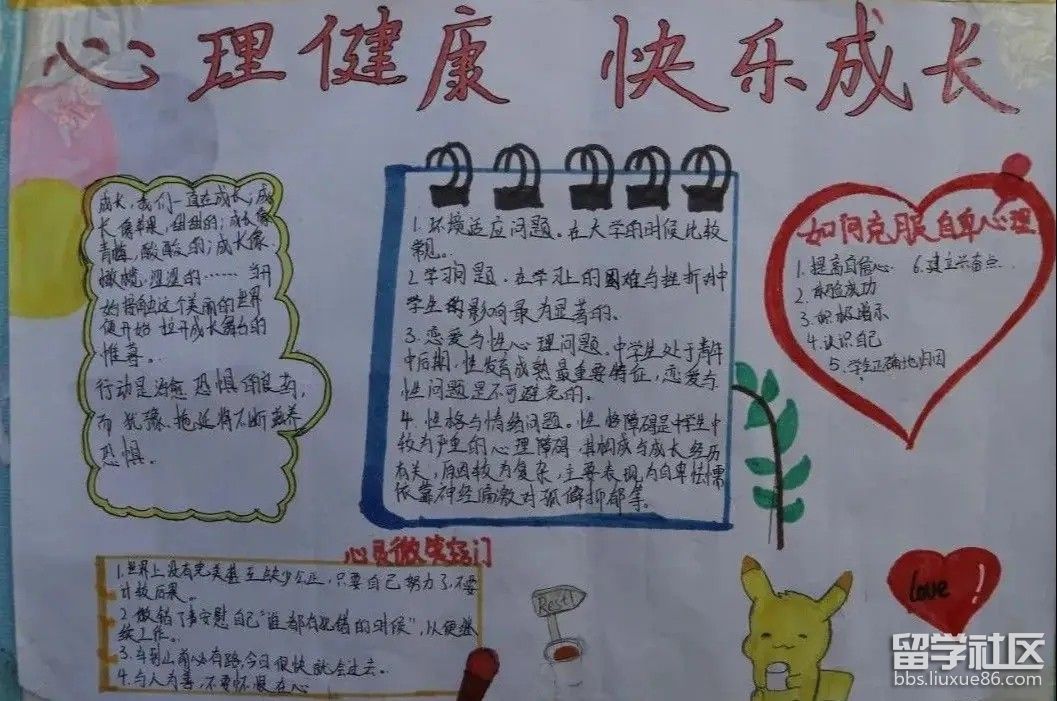 心理健康 快乐成长
成长,我们一直在成长;成
长像苹果,甜甜的;成长像
青梅,酸酸的;成长像
橄榄,涩涩的……
始接触这个美丽的世界
便开始 拉开成长舞台的
帷幕。
行动是治愈恐惧的良药,
而犹豫、拖延将不断滋养
恐惧。
1.环境适应问题。在大学的时候比较
常见。
2.学习问题。在学习上的困难与挫折对中
学生的影响最为显著的。
3.恋爱与性心理问题。中学生处于青年
中后期,性发育成熟最重要特征,恋爱与
性问题是不可避免的。
4.性格与情绪问题。性格障碍是中学生中
较为严重的心理障碍,其构成与成长经历
有关,原因较为复杂,主要表现为自卑怯懦
依赖神经偏激对孤僻抑郁等。
如何克服自卑心理
1.提高自信心 6.建立兴奋点
2.体验成功
3.积极暗示
4.认识自己
5.学生正确地归因
心灵微笑窍门
1.世界上没有完美甚至缺少公正,只要自己努力了,不要
计较后果。
2.做错了事安慰自己“谁都有犯错的时候”,以便继
续工作。
3.车到山前必有路,今日很快就会过去。
4.与人为善,不要怀恨在心
Reset
Love !
留学社区
bbs.liuxue86.com